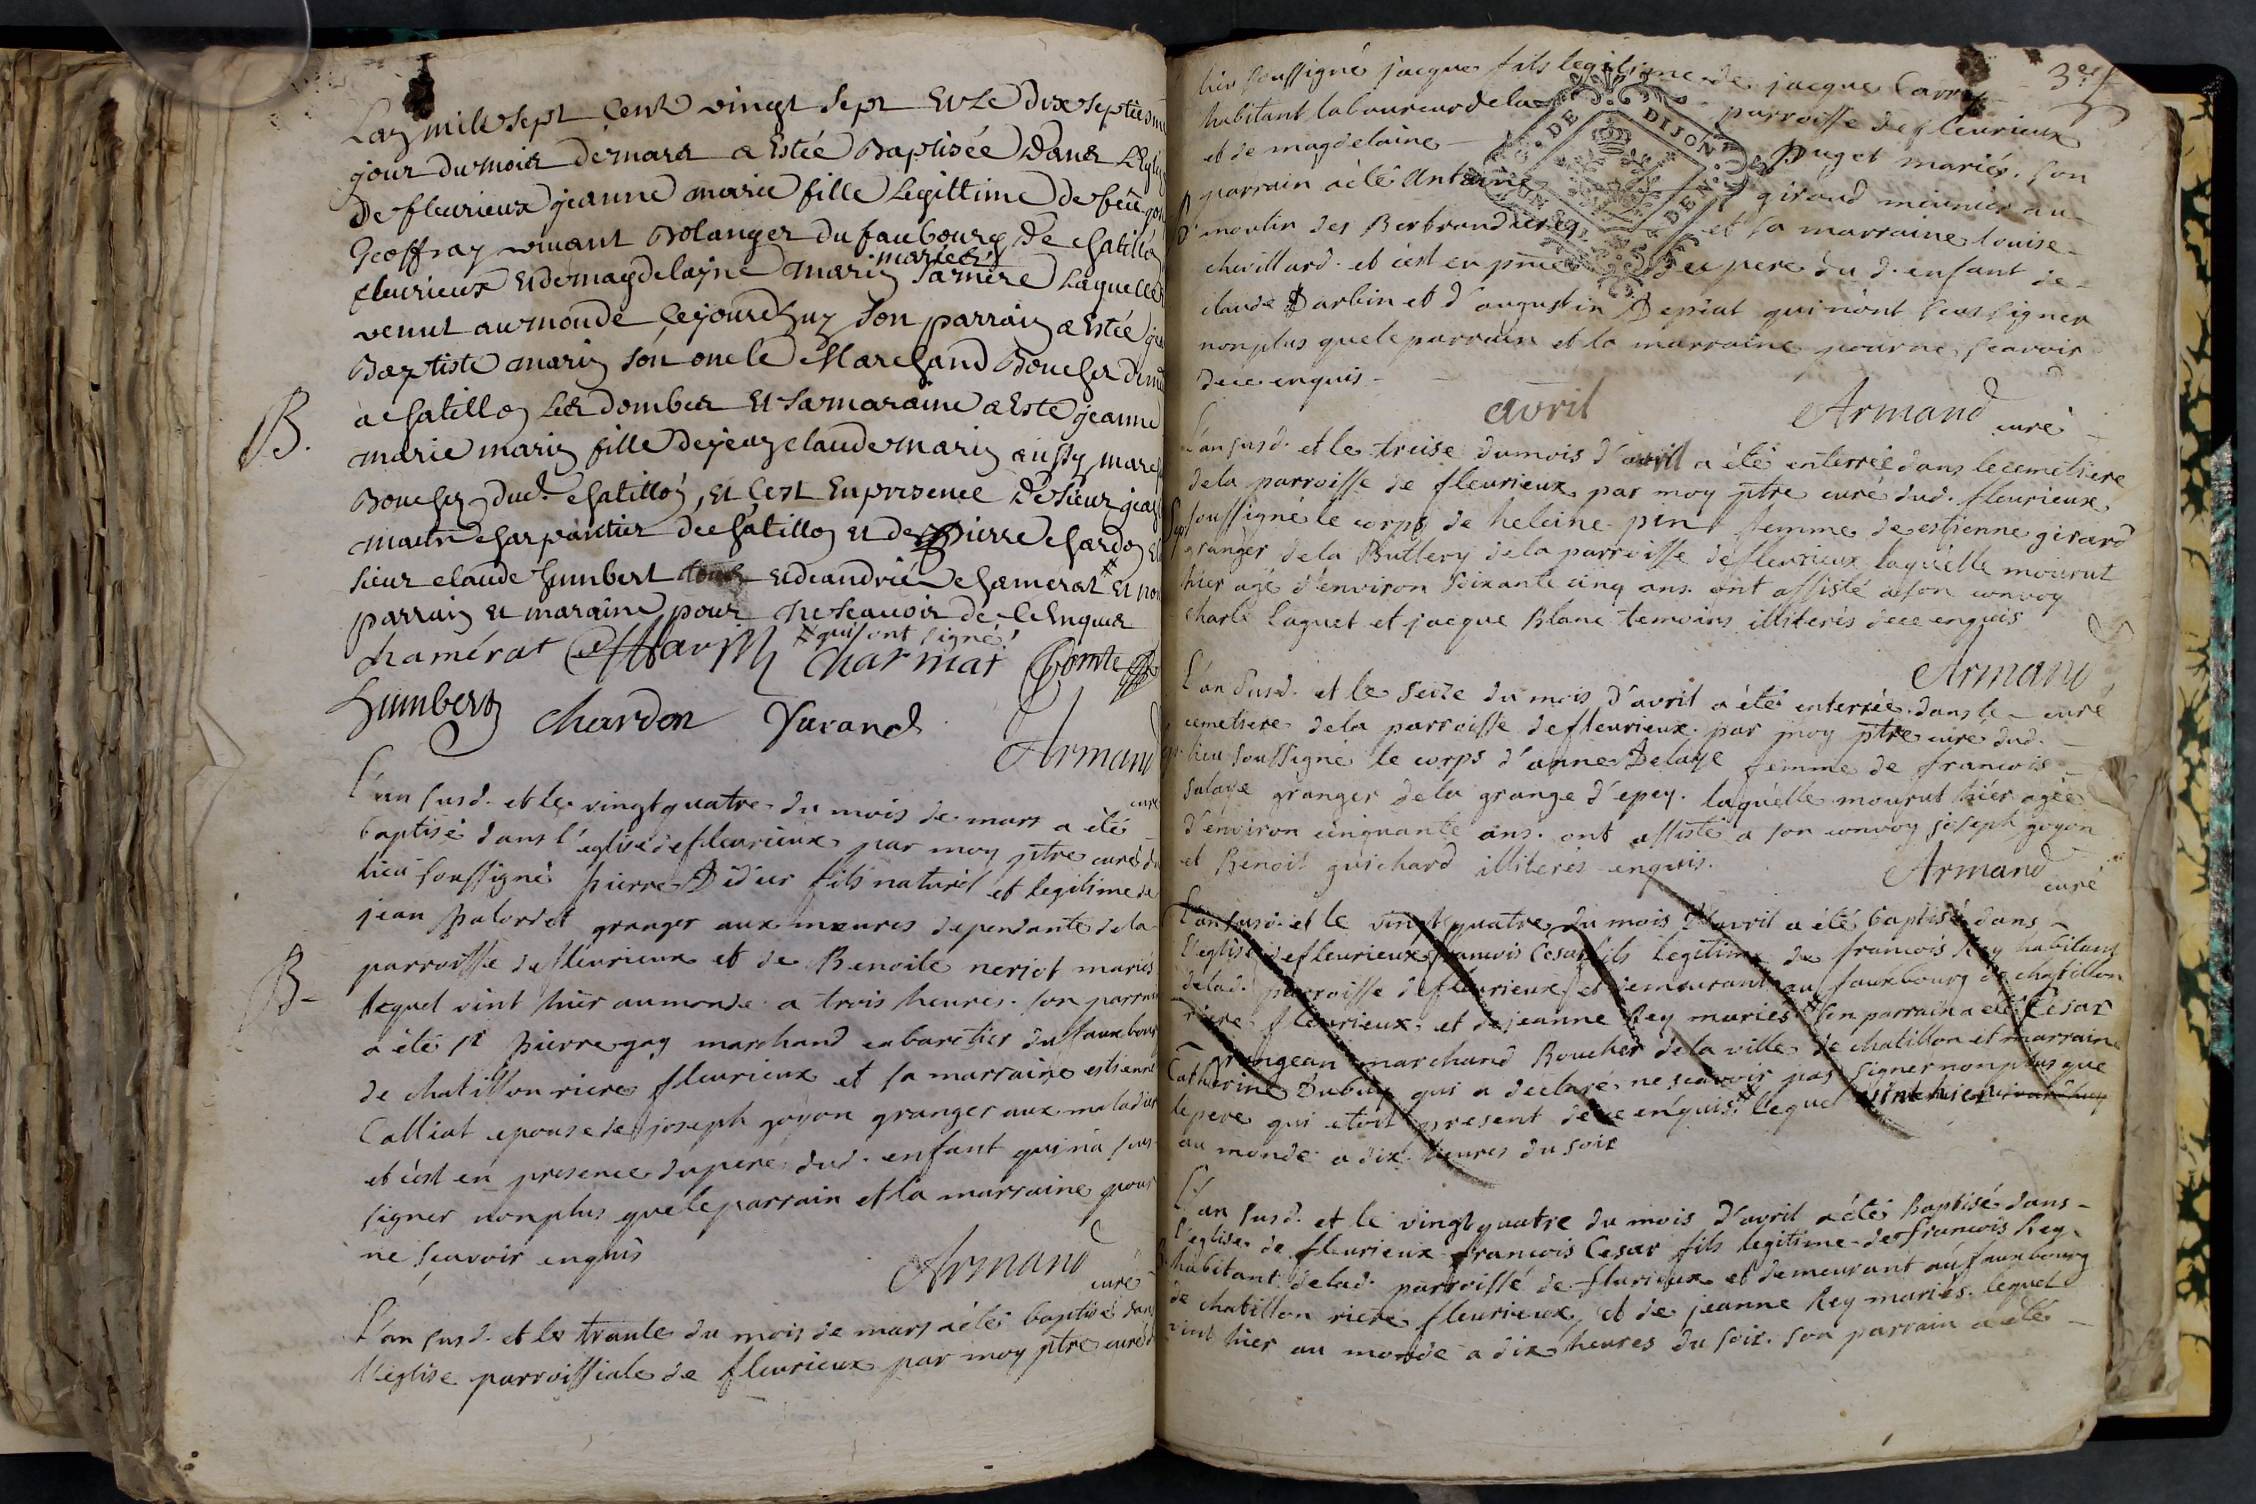 Lan mille sept Cent vingt sept Et Le dix septiesme
jour du mois de mars a Estée Baptisée Dans L'Eglise
De fleurieux jeanne marie fille Legittime de feu
Geoffray vivant Bolanger du faubourg de Chatillon
fleurieux Et de magdelayne marin mariés Sa mère Laquelle
venut au monde Cejourdhuy Son parrain a Estée
Baptiste marin son oncle Marchand Boucher
a Chatillon Les dombes Et Sa maraine a Esté jeanne
B.
marie marin fille de jean claude marin aussy
Boucher dud. Chatillon, Et Cest En presence De Sieur jean
Charpantier de Chatillon Et de pierre Chardon Et
Sieur claude humbert Et de andrié Chamerat # Et non
parrain Et maraine pour ne Scavoir de Ce Enquis
# qui ont signé
chamérat charmat Comte
humbert chardon Yacand
Armand
curé
L'an susd. et le vingt quatre du mois de mars a été
baptisé dans l'eglise de fleurieux par moy ptre curé du
lieu soussigné pierre Didier fils naturel et legitime de
jean palordet granger aux meures dependante de la
parroisse de fleurieux et de Benoite neriot mariés
B-
lequel vint hier au monde a trois heures. son parrain
a été pierre gay marchand cabaretier du fauxbourg
de chatillon riere fleurieux et sa marraine estienne
Calliat epouse de joseph goyon granger aux
et c'est en presence du pere dud. enfant qui n'a sceu
signer non plus que le parrain et la marraine pour
ne sçavoir enquis
Armand
curé
L'an susd. et le trante du mois de mars a été baptisé dans
l'eglise parroissiale de fleurieux par moy ptre curé d
3e f
lieu soussigné jacque fils legitime de jacque Carret
habitant laboureur de la parroisse de fleurieux
et de magdelaine Puget mariés. son
parrain a été Antoine girand meunier au
moulin des Berbrandieres et sa marraine louise
chevillard. et c'est en pnce du pere du d. enfant de
claude Darbin et d'augustin Depiat qui n'ont sceu signer
non plus que le parrain et la marraine pour ne sçavoir
de ce enquis
G. DE DIJON
avril
Armand curé
L'an susd. et le treise du mois d'avril a été enterrée dans le cemetiere
de la parroisse de fleurieux par moy ptre curé dud. fleurieux
soussigné le corps de heleine pin femme de estienne girard
granger de la Buttery de la parroisse de fleurieux laquelle mourut
hier agé d'environ soixante cinq ans. ont assisté a son convoy
charle laguet et jacque Blanc temoins illiterés de ce enquis
Armand
curé
L'an susd. et le seize du mois d'avril a été enterrée dans le
cemetiere de la parroisse de fleurieux par moy ptre curé dud.
lieu soussigné le corps d'anne Delaye femme de francois
Salaye granger de la grange d'epey. laquelle mourut hier agée
d'environ cinquante ans. ont assisté a son convoy joseph goyon
et Benoit guichard illiterés enquis.
Armand
curé
L'an susd. et le vingt quatre du mois d'avril a été baptisé dans
l'eglise de fleurieux francois Cesar fils legitime de francois Rey habitant
de lad. parroisse de fleurieux et demeurant au fauxbourg de chatillon
riere fleurieux. et de jeanne Rey mariés # son parrain a été Cesar
marchand Boucher de la ville de chatillon et marraine
Catherine Dubuis qui a declaré ne sçavoir pas signer non plus que
le pere qui etoit present de ce enquis. # lequel vint hier
au monde a dix heures du soir
L'an susd. et le vingt quatre du mois d'avril a été Baptisé dans
l'eglise de fleurieux francois Cesar fils legitime de francois Rey
habitant de lad. parroisse de flurieux et demeurant au fauxbourg
de chatillon riere fleurieux, et de jeanne Rey mariés. lequel
vint hier au monde a dix heures du soir. son parrain a été